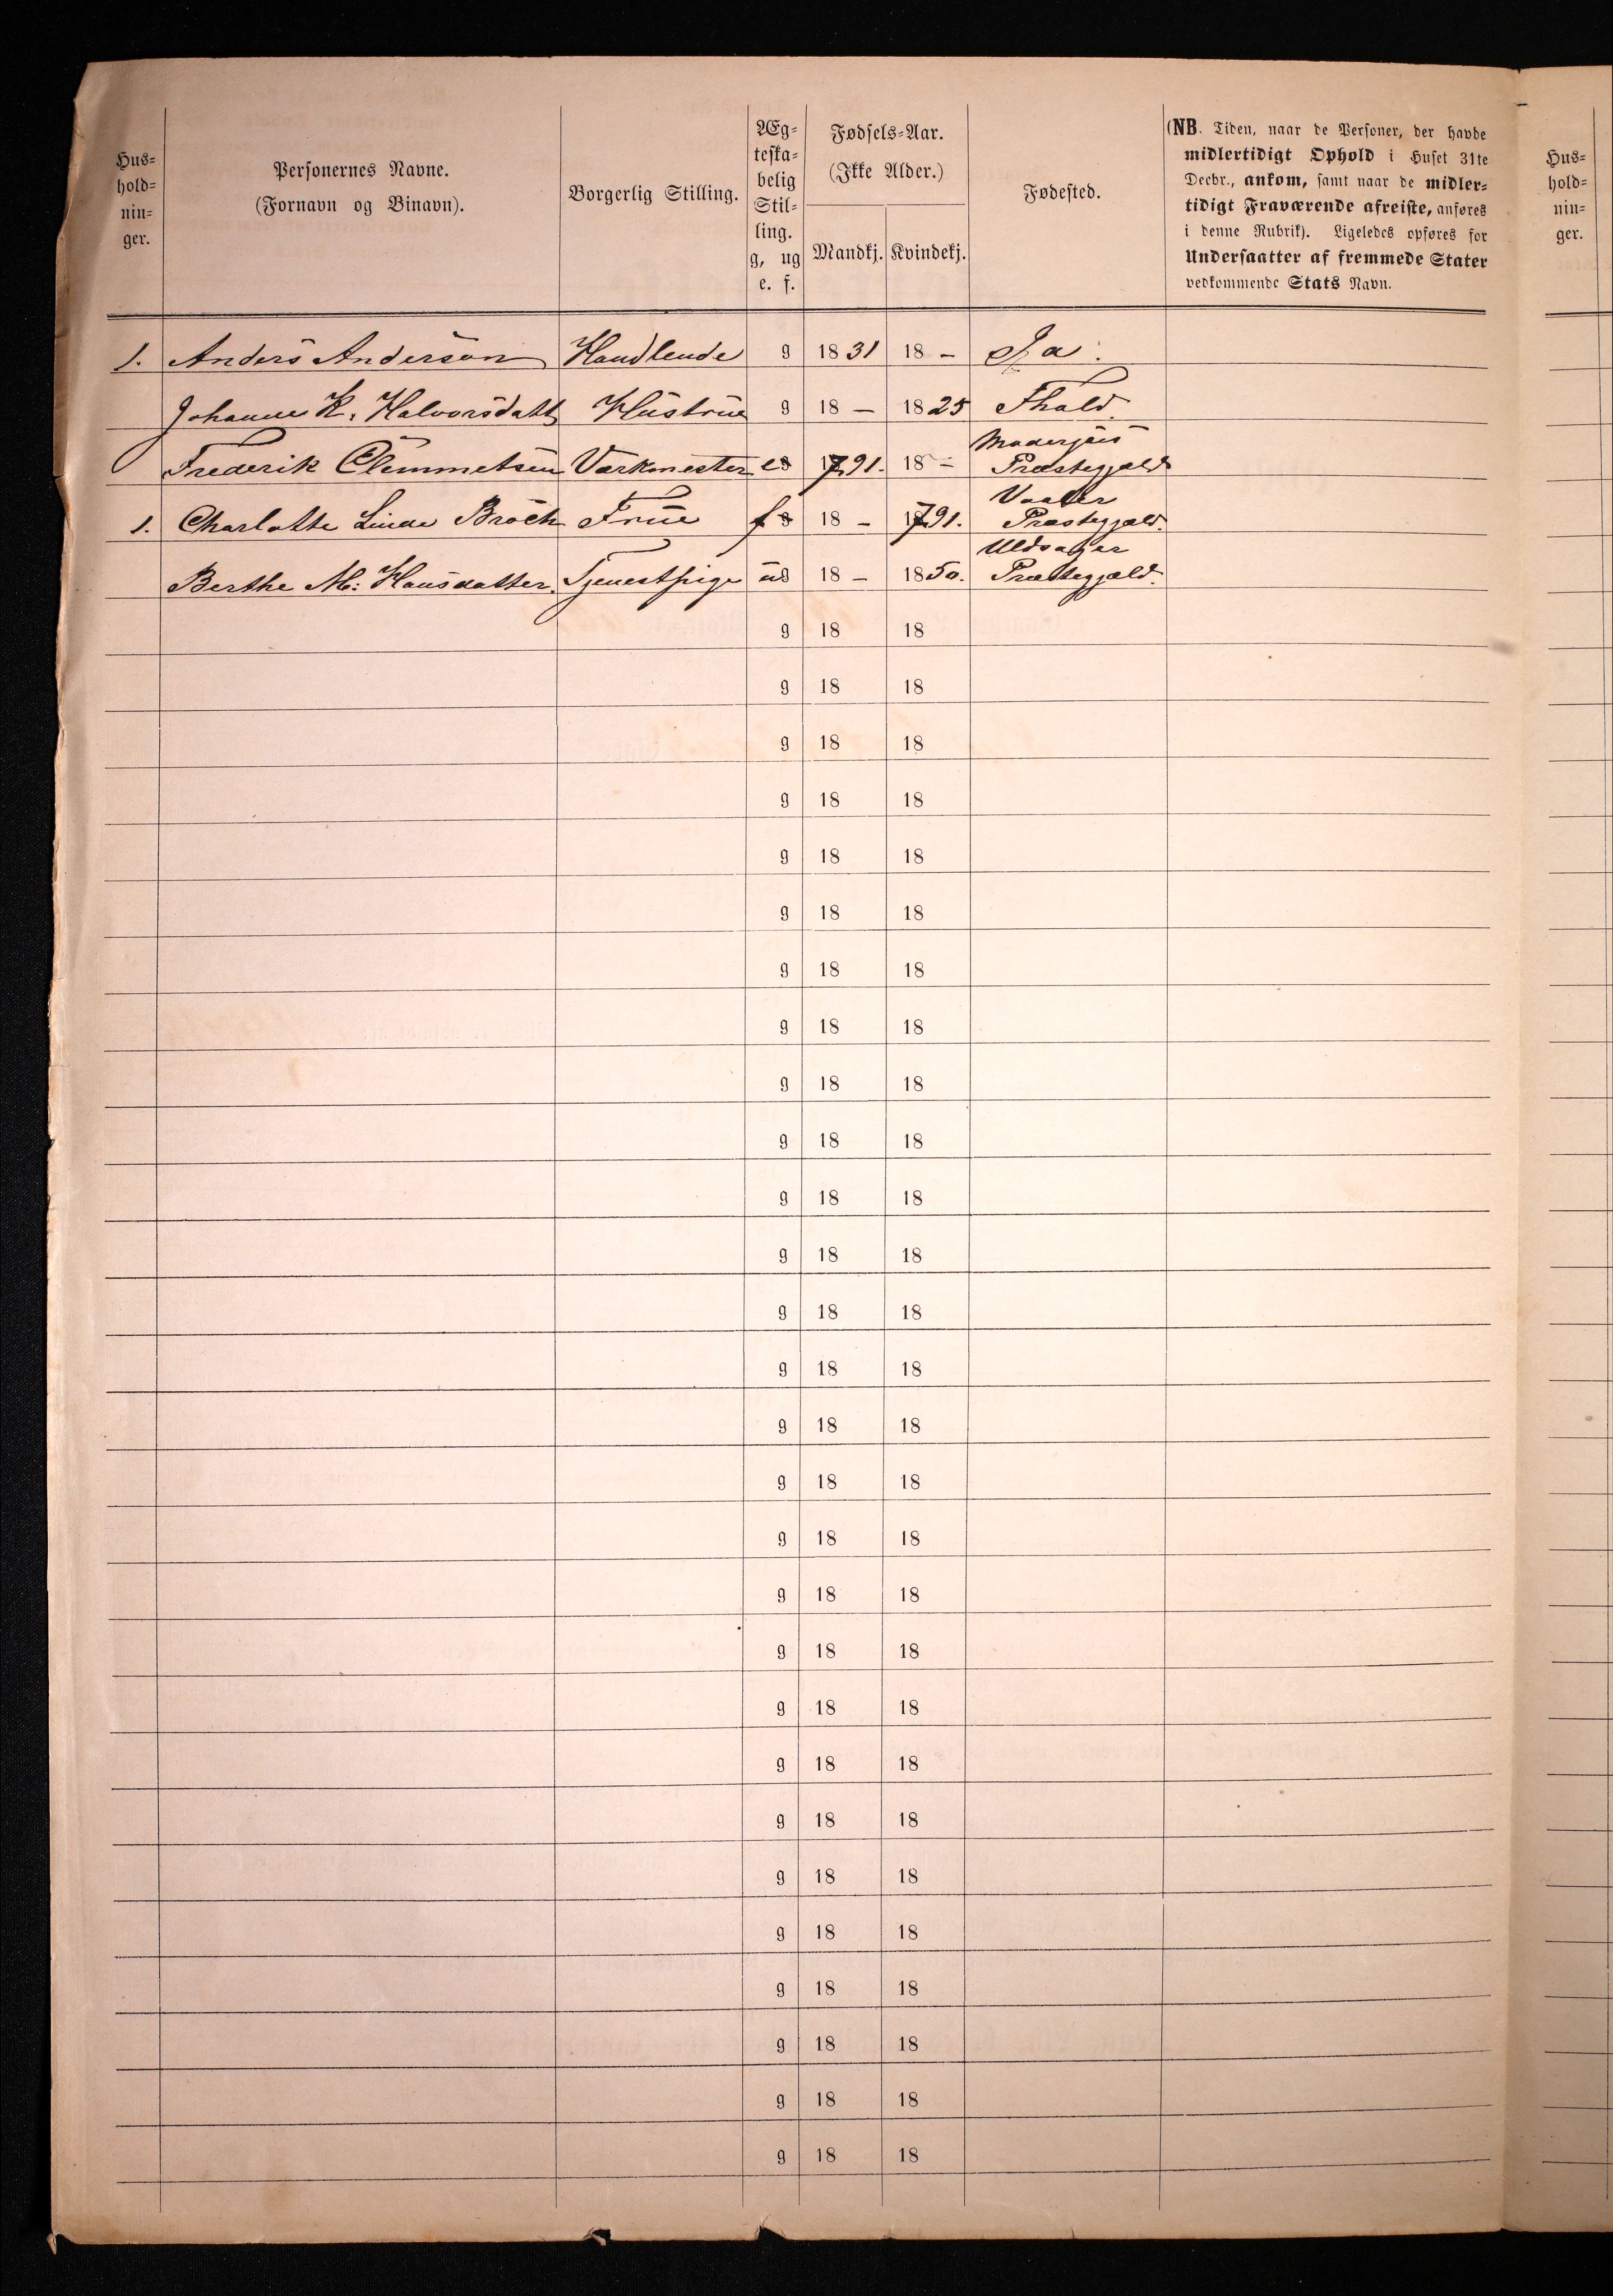 Hus-
hold-
nin-
ger.
Personernes Navne.
(Fornavn og Binavn).
Borgerlig Stilling.
Æg-
teska-
belig
Stil-
ling.
g, ug
e. f.
Fødsels-Aar.
(Ikke Alder.)
Mandkj. Kvindekj.
Fødested.
(NB. Tiden, naar de Personer, der havde
midlertidigt Ophold i Huset 31te
Decbr., ankom, samt naar de midler-
tidigt Fraværende afreiste, anføres
i denne Rubrik). Ligeledes opføres for
Undersaatter af fremmede Stater
vedkommende Stats Navn.
Hus-
hold-
nin-
ger.
1. Anders Anderson Handlende g 1831 18 –
Johanne K. Halvorsdatt Hustrue g 18 – 1825 Fhald.
Frederik Clemmetsen Værkmester e 1791. 18 – Præstegjæld
1. Charlotte Broch Frue f 18 – 1791. Vaaler
Præstegjæld.
Berthe M: Hansdatter. Tjenestpige u g 18 – 1850. Præstegjæld.
g 18 18
g 18 18
g 18 18
g 18 18
g 18 18
g 18 18
g 18 18
g 18 18
g 18 18
g 18 18
g 18 18
g 18 18
g 18 18
g 18 18
g 18 18
g 18 18
g 18 18
g 18 18
g 18 18
g 18 18
g 18 18
g 18 18
g 18 18
g 18 18
g 18 18
g 18 18
g 18 18
g 18 18